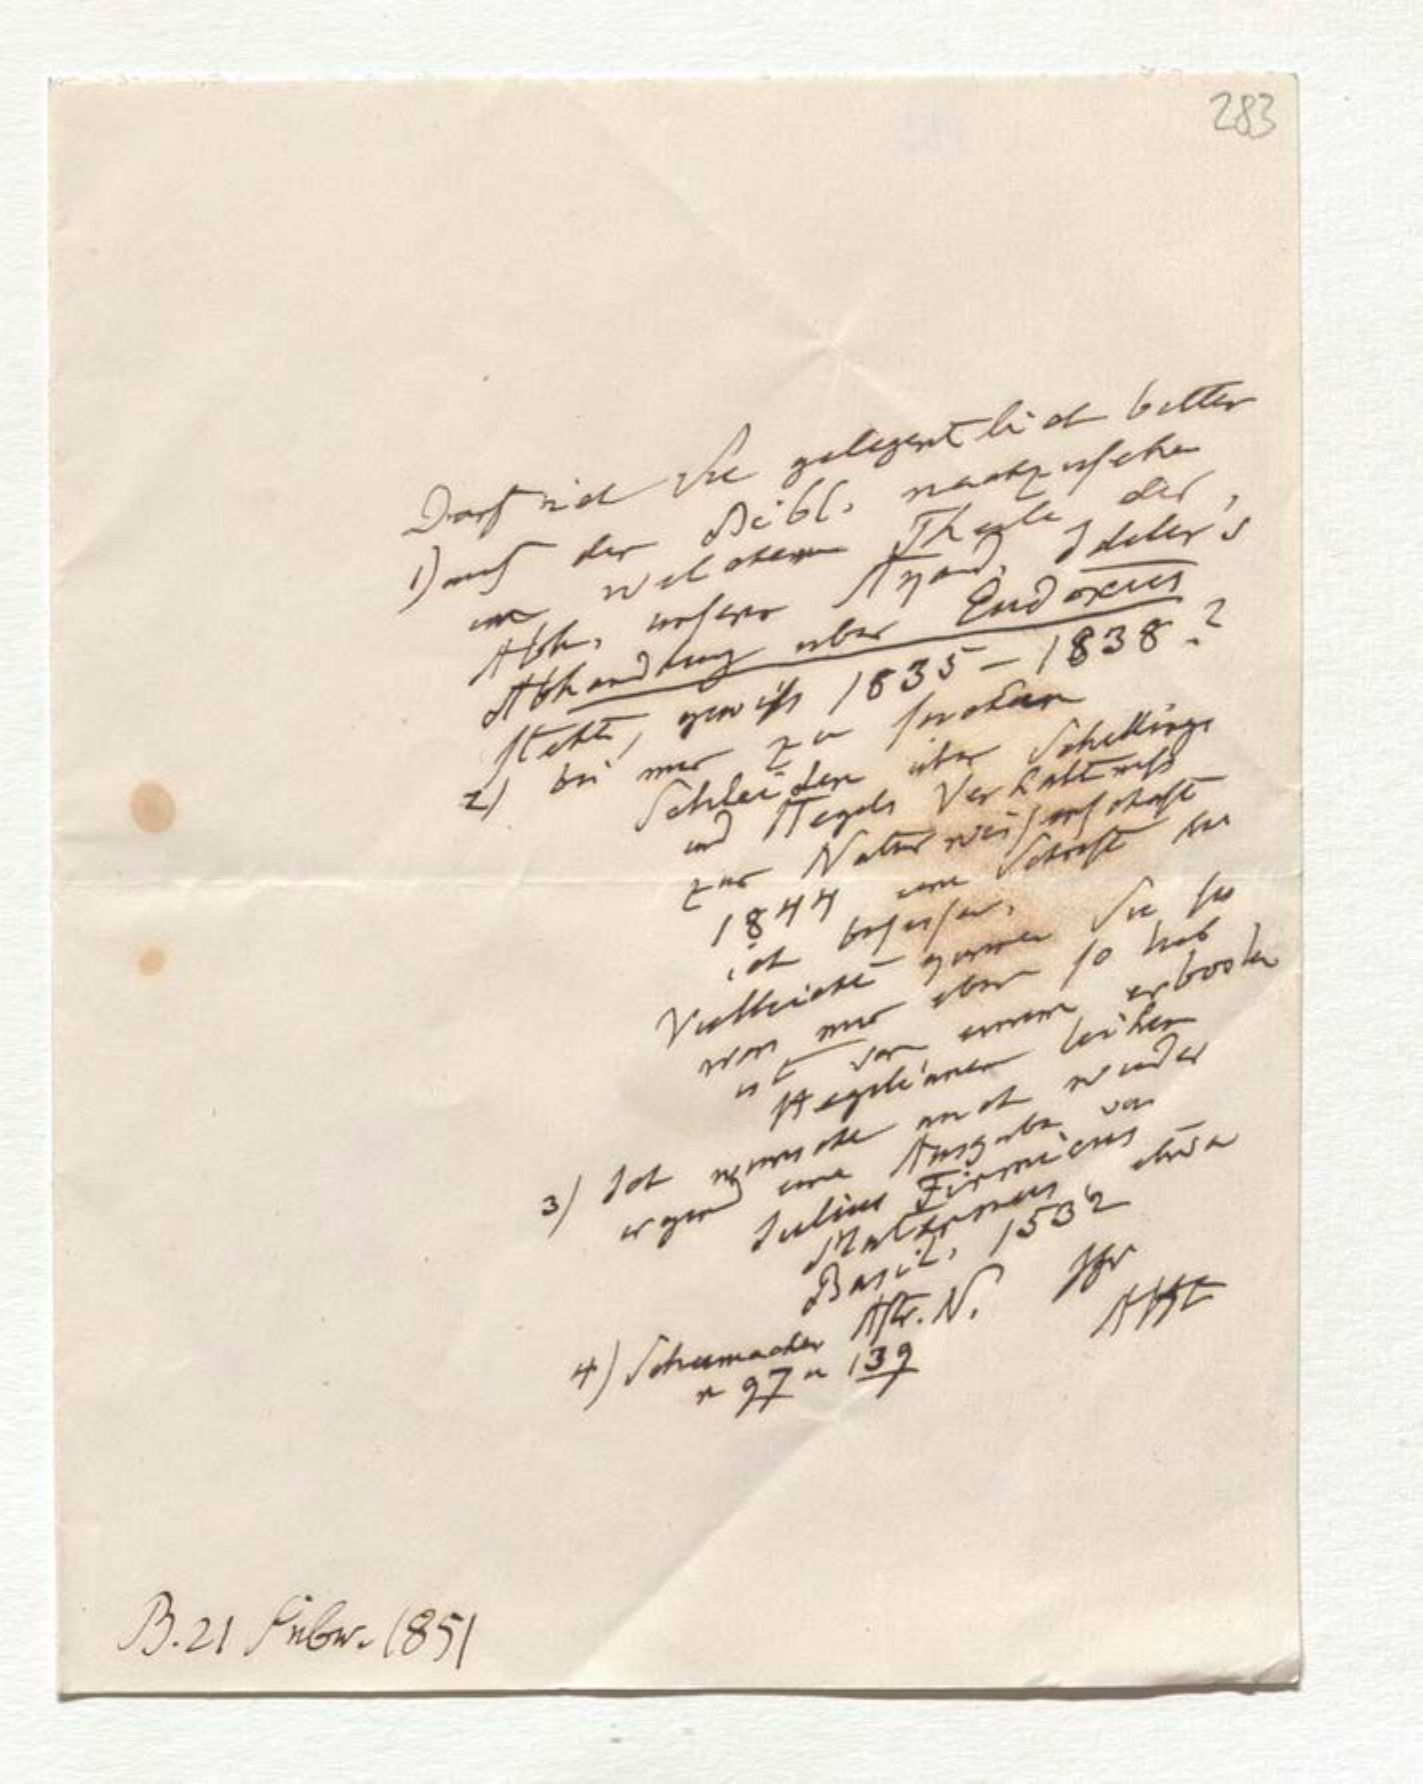 283
Darf ich Sie gelegentlich bitten
1) auf der Bibl. nachzusehen
in welchem Theile der
Abh. unserer Akad. Ideler's
Abhandlung über Eudoxus
steht, gewiss 1835–1838.?
2) bei mir zu suchen
Schleiden über Schellings
und Hegels Verhältniss
zur Naturwissenschaft
1844 eine Schrift die
ich besitze.
Vielleicht Sie sie
mir eben so hab
ist von einem erbosten
Hegelianer
3) Ich wünschte auch wieder
irgend eine Ausgabe von
Julius Firmicus
Maternus, etwa
Basil. 1532
Ihr
AHt
4) Schumacher Astr. N.
n 97 u 139
B. 21 Febr. 1851